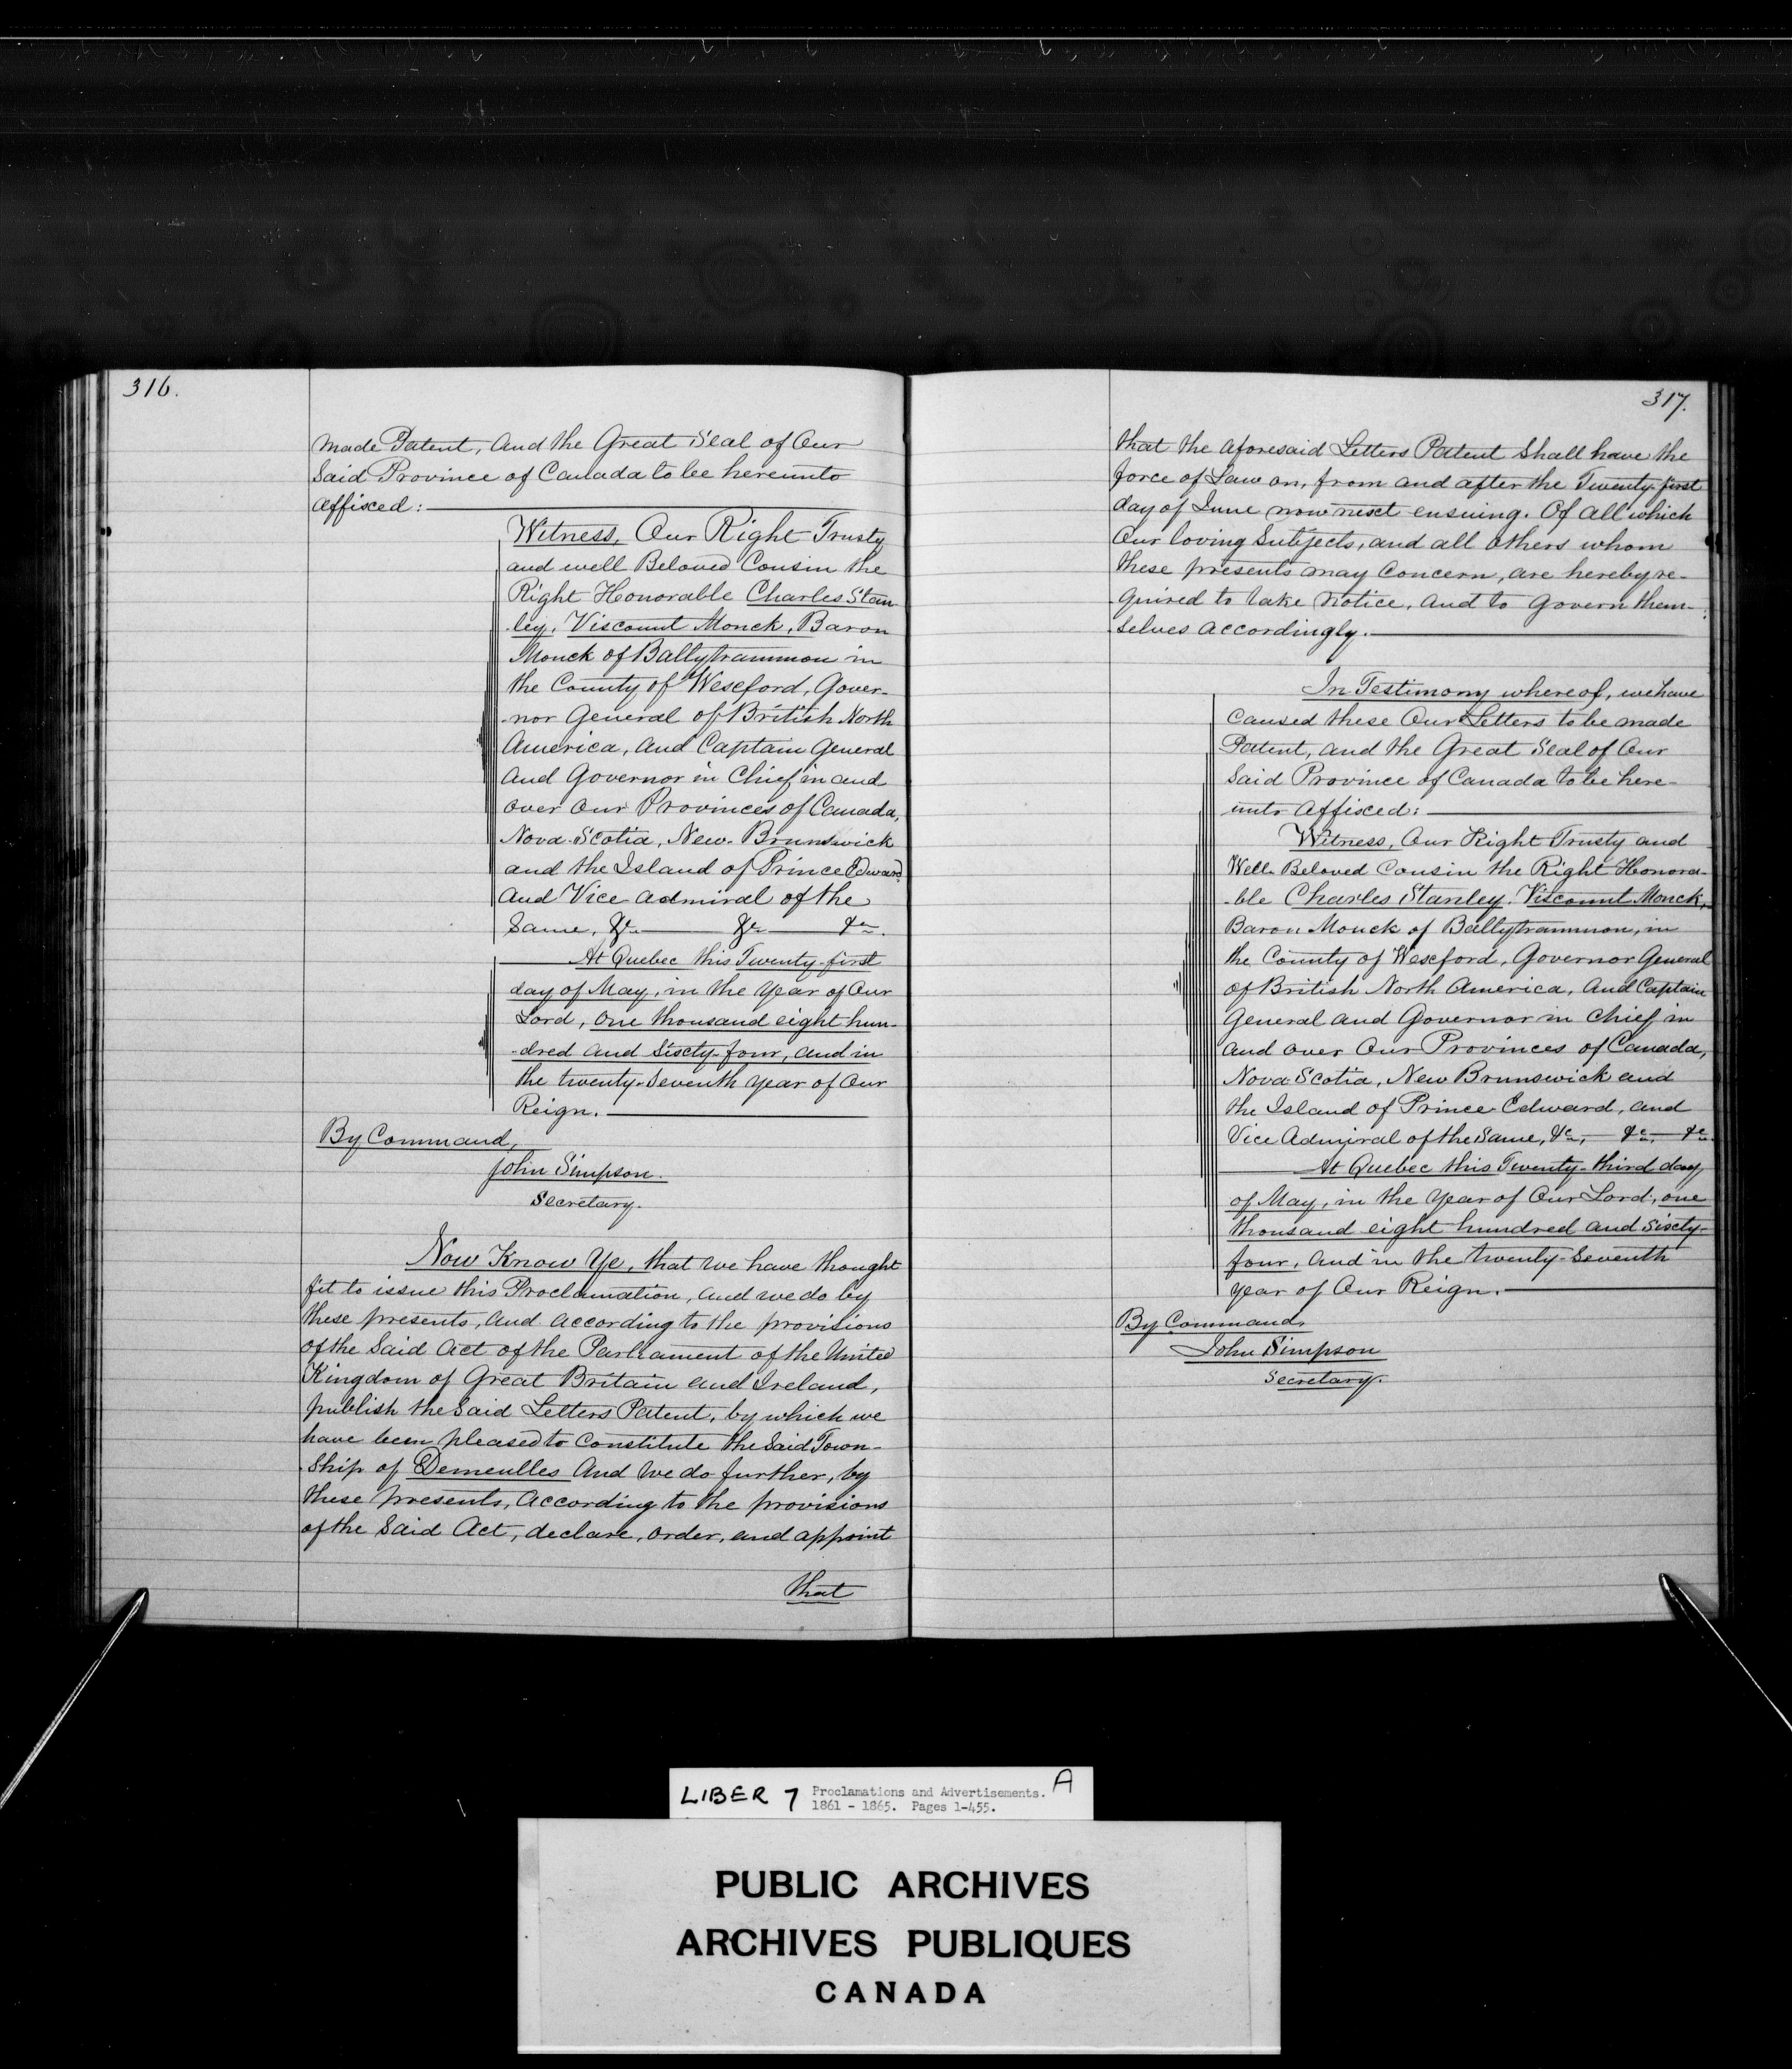 316.
made Patent, and the Great Seal of Our
Said Province of Canada to be hereunto
affixed:
Witness, Our Right Trusty
and well Beloved Cousin the
Right Honorable Charles Stan-
-ley, Viscount Monck, Baron
Monck of Ballytrammon in
the County of Wexford, Gover-
-nor General of British North
America, and Captain General
and Governor in Chief in and
over Our Provinces of Canada,
Nova-Scotia, New-Brunswick
and the Island of Prince Edward
and Vice admiral of the
Same, &c &c &c.
At Quebec this Twenty-first
day of May, in the Year of Our
Lord, one thousand eight hun-
-dred and Sixty-four, and in
the twenty-seventh year of Our
Reign.
By Command,
John Simpson.
Secretary.
Now Know Ye, that we have thought
fit to issue this Proclamation, and we do by
these presents, and according to the provisions
of the Said Act of the Parliament of the United
Kingdom of Great Britain and Ireland,
publish the Said Letters Patent, by which we
have been pleased to constitute the Said Town-
-ship of Demeulles and we do further, by
these presents, according to the provisions
of the Said Act, declare, order, and appoint
that
317.
that the aforesaid Letters Patent Shall have the
force of Law on, from and after the Twenty-first
day of June now next ensuing. Of all which
Our loving Subjects, and all others whom
these presents may concern, are hereby re-
-quired to take notice, and to govern them-
-selves accordingly.
In Testimony whereof, we have
caused these Our Letters to be made
Patent, and the Great Seal of Our
Said Province of Canada to be here-
unto affixed:
Witness, Our Right Trusty and
Well-Beloved Cousin the Right Honora-
-ble Charles Stanley, Viscount Monck,
Baron Monck of Ballytrammon, in
the County of Wexford, Governor General
of British North America, and Captain
General and Governor in Chief in
and over Our Provinces of Canada,
Nova-Scotia, New Brunswick and
the Island of Prince Edward, and
Vice Admiral of the Same, &c, &c, &c
At Quebec this Twenty-third day
of May, in the Year of Our Lord, one
thousand eight hundred and sixty-
four, and in the twenty-seventh
year of Our Reign.
By Command,
John Simpson
Secretary.
LIBER 7 Proclamations and Advertisements. A
1861 - 1865. Pages 1-455.
PUBLIC ARCHIVES
ARCHIVES PUBLIQUES
CANADA